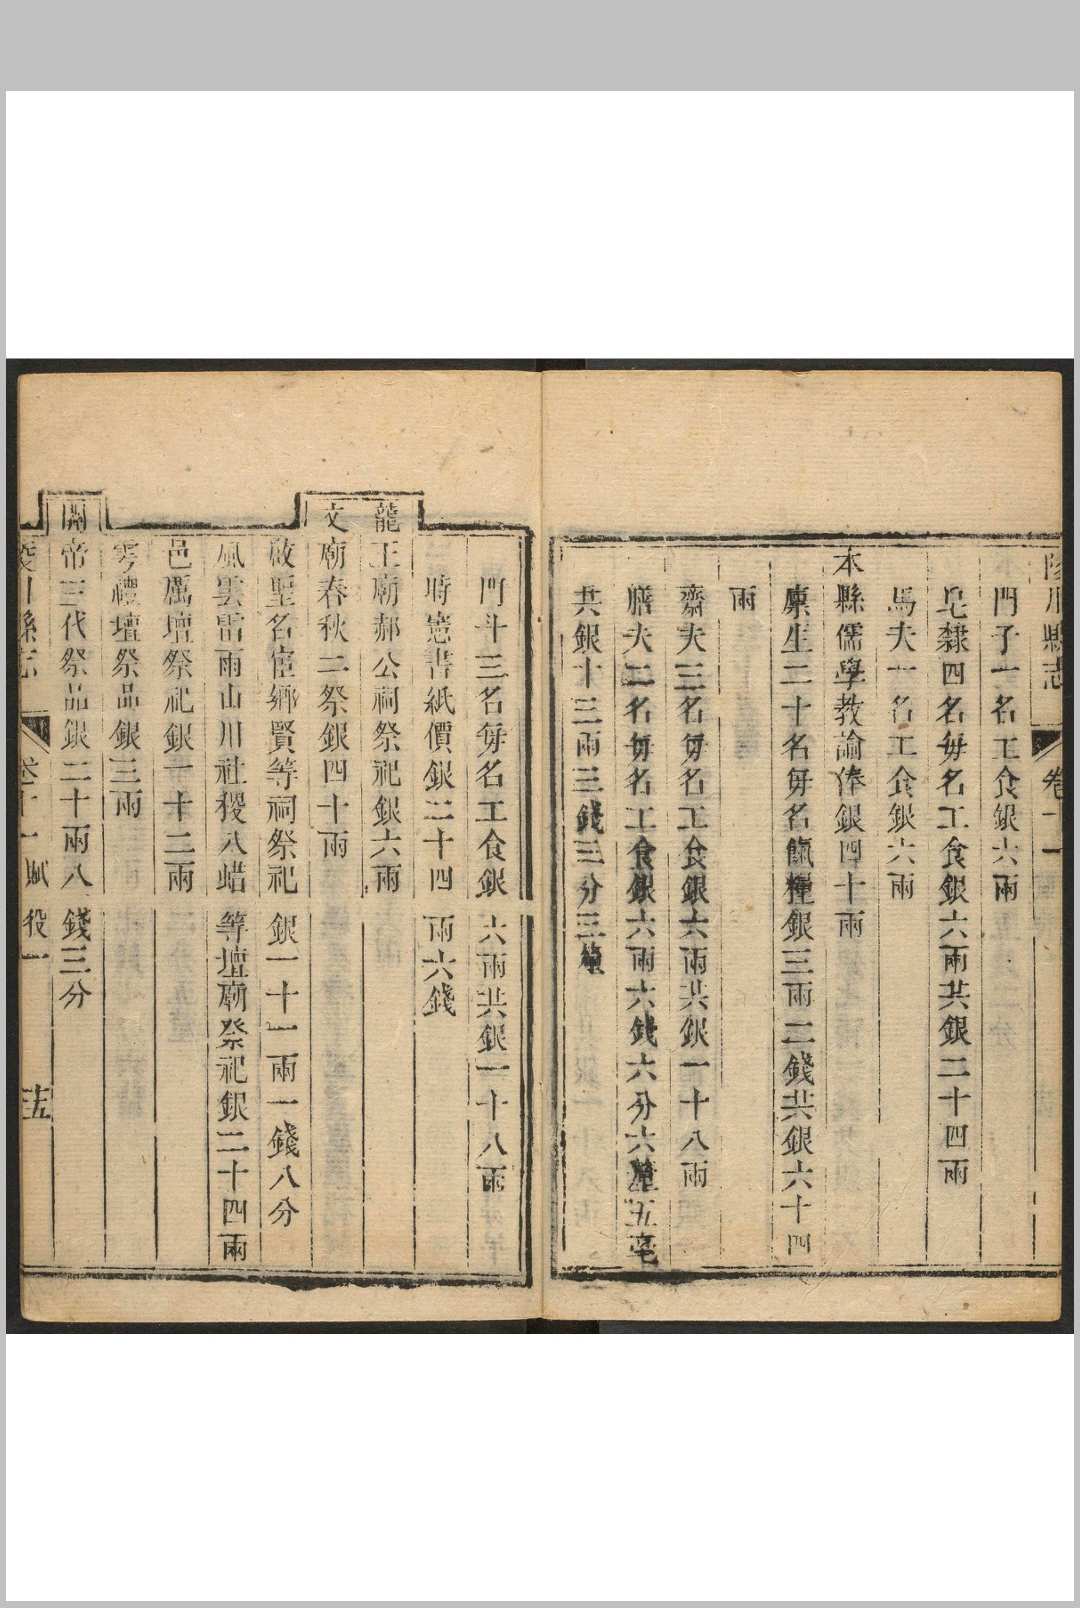 陵川縣志
卷十一
門子一名工食銀六兩
皂隸四名每名工食銀六兩共銀二十四兩
馬夫一名工食銀六兩
本縣儒學教諭俸銀四十兩
廪生二十名每名餼糧銀三兩二錢共銀六十四
兩
齋夫三名每名工食銀六兩共銀一十八兩
膳夫二名每名工食銀六兩六錢六分六釐五毫
共銀十三兩三錢三分三釐
門斗三名每名工食銀六兩共銀一十八兩
時憲書紙價銀二十四兩六錢
龍王廟郝公祠祭祀銀六兩
文廟春秋二祭銀四十兩
啟聖名宦鄉賢等祠祭祀銀一十一兩一錢八分
風雲雷雨山川社稷八蜡等壇廟祭祀銀二十四兩
邑厲壇祭祀銀一十二兩
雩禮壇祭品銀三兩
關帝三代祭品銀二十兩八錢三分
陵川縣志
卷十一 賦役一
十五